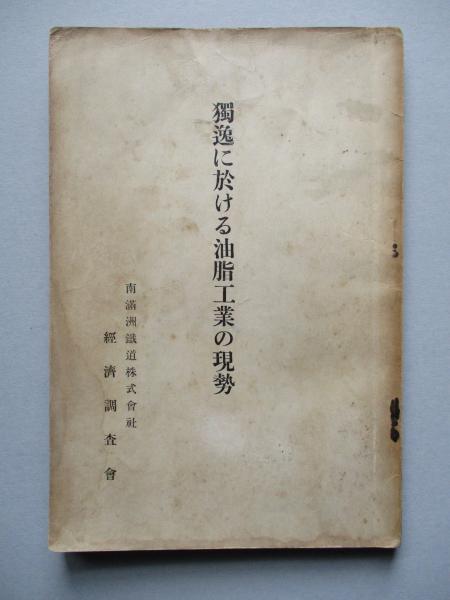 獨逸に於ける油脂工業の現勢
南滿洲鐵道株式會社
經濟調査會